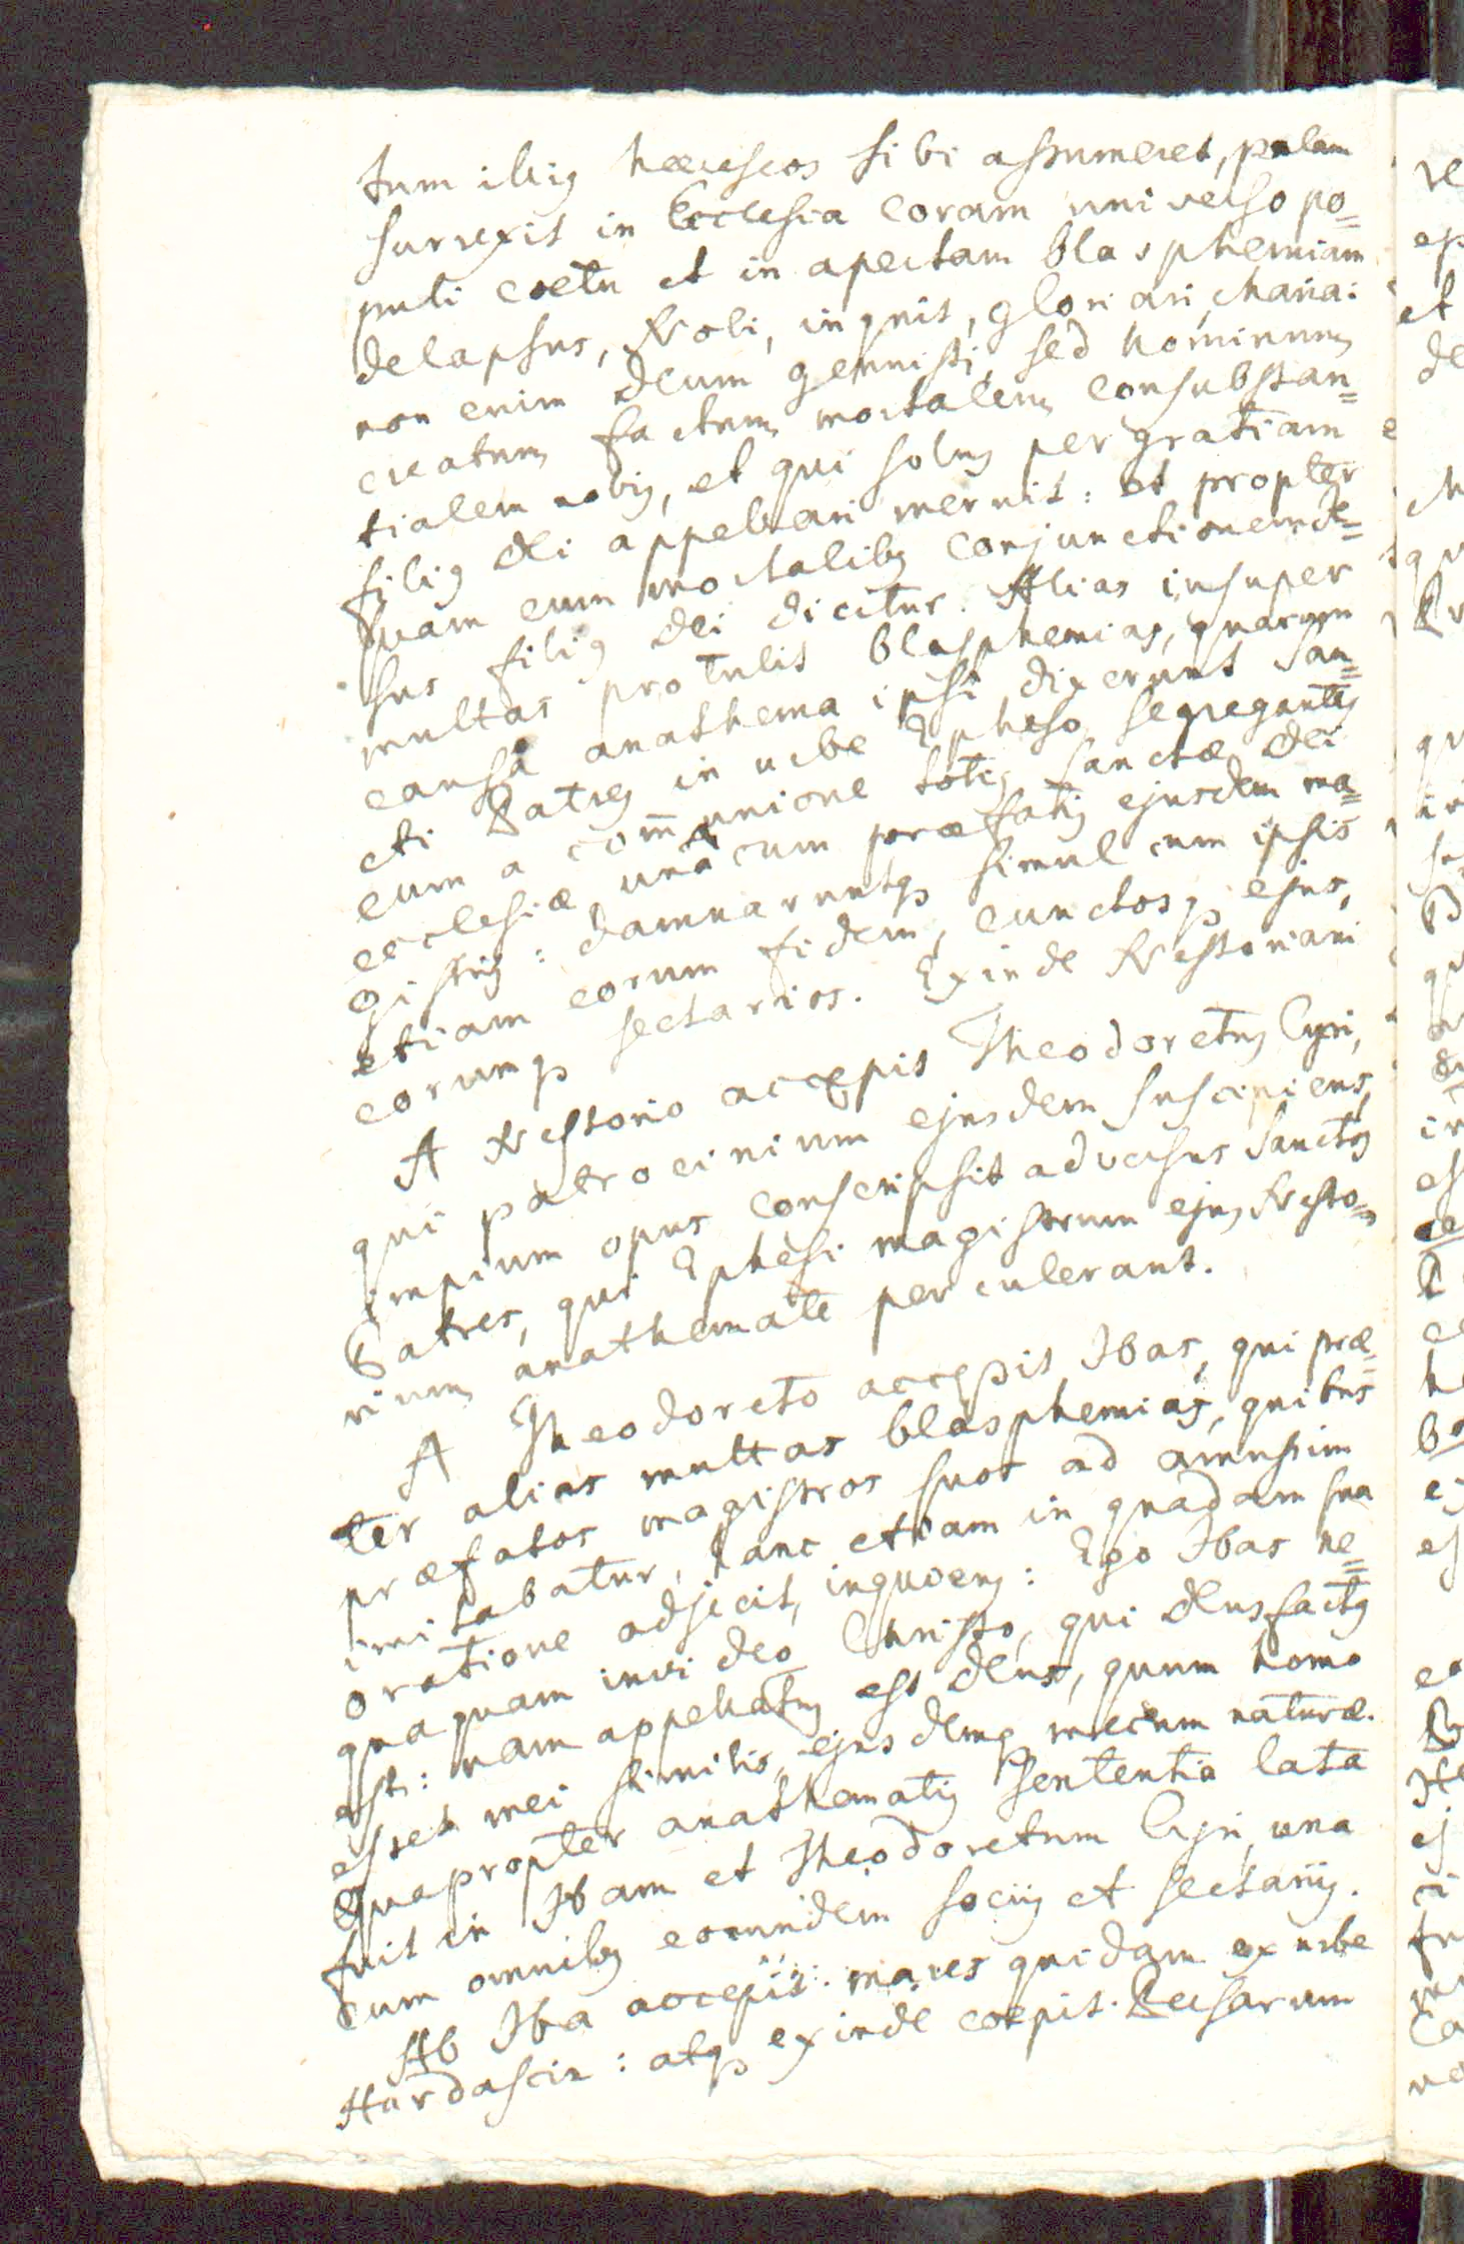 tum illius hæreseos sibi assumeret, palam
surrexit in Ecclesia coram universo po=
puli coetu et in apertam blasphemiam
delapsus, Noli, inquit, gloriari, Maria:
non enim Deum genuisti, sed hominum
creatum factum mortalem consubstan=
tialem nobis, et qui solus per gratiam
filius Dei appellari meruit: et propter
suam cum mortalibus conjunctionem
sus filius Dei dicitur. Alias insuper
multas protulit blasphemias, quarum
causâ anathema ipsi dixerunt San=
cti Patres in urbe Epheso segregantes
eum a communione totius Sanctæ Dei
ecclesiæ unâ cum præfatis ejusdem ma=
gistris: damnaruntq simul cum ipsis
etiam eorum fidem, cunctosq ejus,
eorumq sectarios. Exinde Nestoriani
A Nestorio accepit Theodoretus Cyri,
qui patrocinium ejusdem suscipiens,
impium opus conscripsit adversus Sanctos
Patres, qui Ephesi magistrum ejus Nesto=
rium anathemate perculerant.
A Theodoreto accepit Ibas, qui præ=
ter alias multas blasphemias, quibus
præfatos magistros suos ad amussim
imitabatur, hanc etiam in quadam sua
oratione adjecit, inquiens: Ego Ibas ne=
quaquam invideo Christo, qui Deus factus
est: nam appellatus est Deus, quum homo
esset mei similis, ejusdemq mecum naturæ.
Quapropter anathematis sententia lata
fuit in Ibam et Theodoretum Cyri, una
cum omnibus eorundem sociis et sectariis.
Ab Iba accepit: mares quidam ex urbe
Hardascir: atq exinde coepit. Persarum